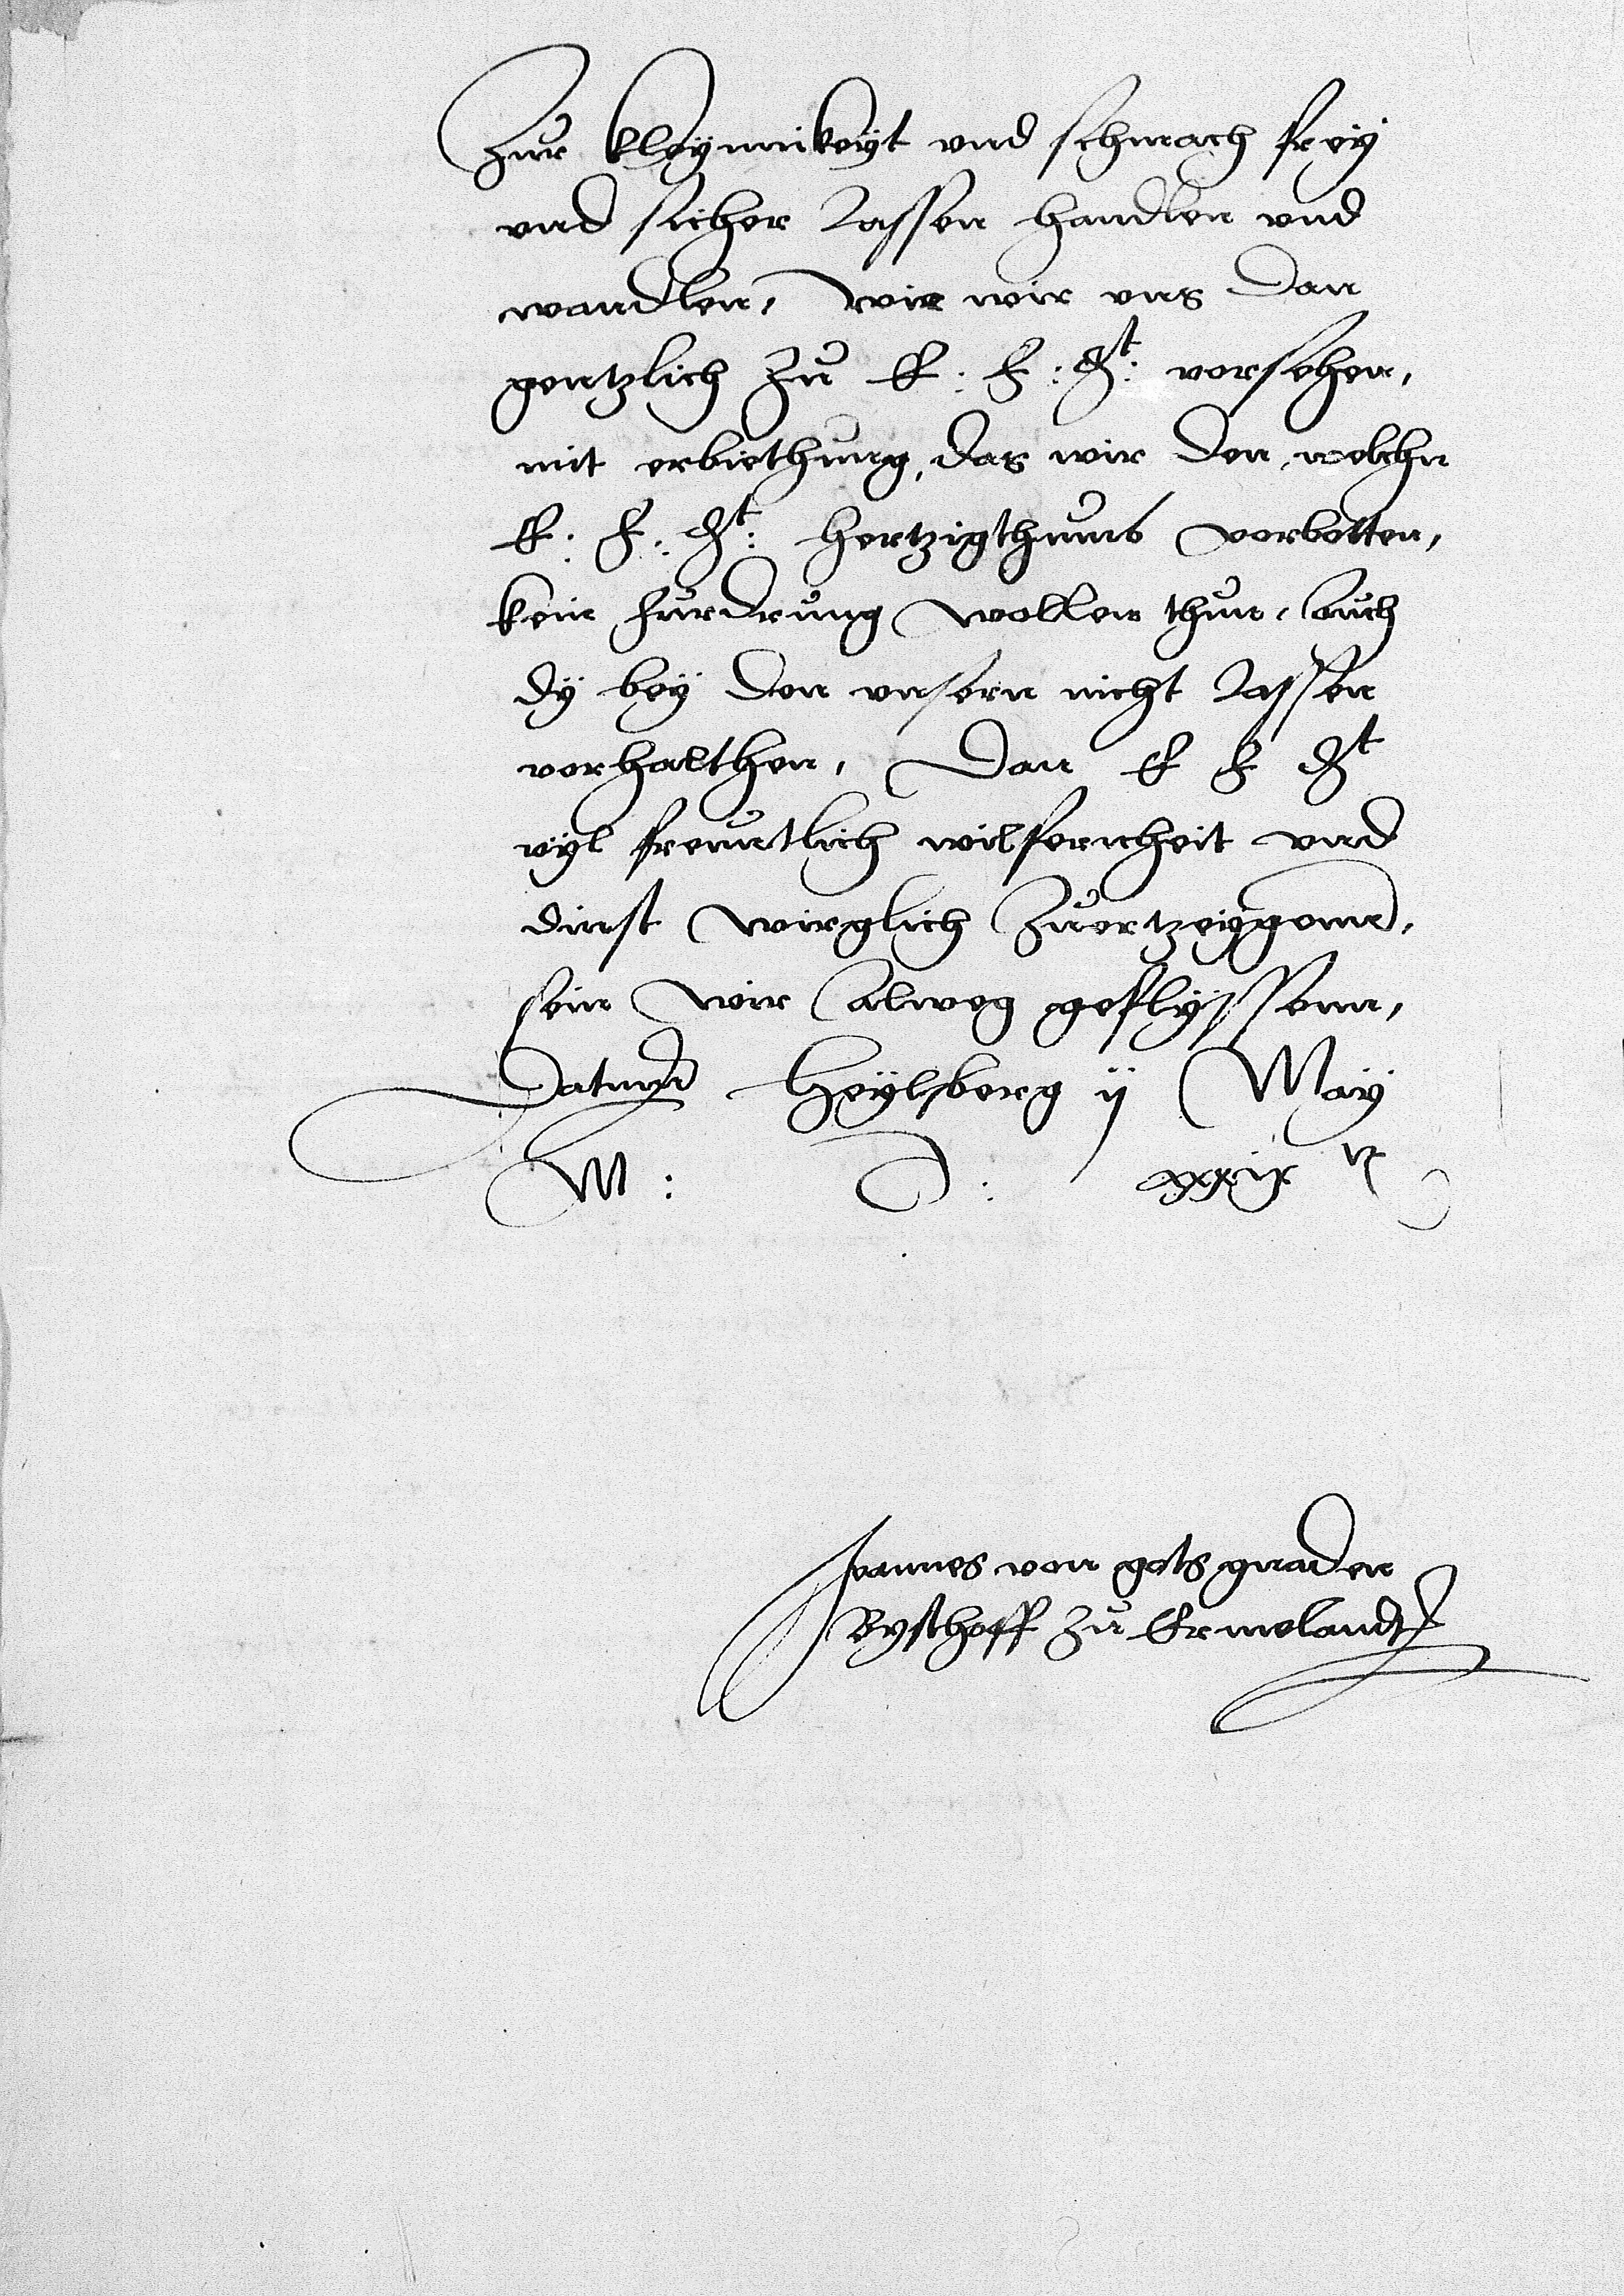 Zur kleynnikeyt vnd schmach frey
vnd sicher lassen handlen vnd
wandlen, wie wir vns dan
gentzlich zu E: F: Gt: vorsehen,
mit erbiethung, das wir den, welchn
E: F: Gt: hertzigthumb vorbotten,
kein furdrung wollen thun, auch
dy bey den vnsern nicht lassen
vorhalthen, Dan E F Gt
vyl freuntlich wilfernheit vnd
dinst wirglich zuertzeygenn,
sein wir alweg geflyssenn,
Datum Heylsberg ij May
M: D:
Joannes von gots gnaden
Bysthoff zu Ermelandt